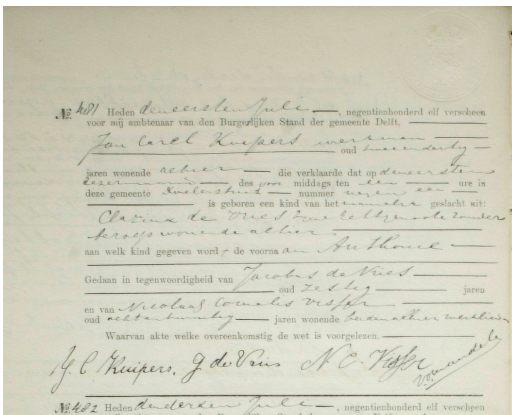 №. 481 Heden den eersten Juli, negentienhonderd elf verscheen
voor mij ambtenaar van den Burgerlijken Stand der gemeente Delft,
Jan Carel Kuipers werkman
oud tweeendertig
jaren wonende alhier die verklaarde dat op den eersten
dezer maand des voor middags ten een ure in
deze gemeente nummer
is geboren een kind van het mannelijk geslacht uit:
Clasina de Vries zijne echtgenoote zonder
beroep wonende alhier
aan welk kind gegeven word de voornaam Anthonie
Gedaan in tegenwoordigheid van Jacobus de Vries
oud zestig jaren
en van Nicolaas Cornelis Visser
oud jaren wonende beiden alhier
Waarvan akte welke overeenkomstig de wet is voorgelezen.
J. C. Kuipers. J de Vries N. C. Visser
№. 482 Heden den derden Juli, negentienhonderd elf verscheen